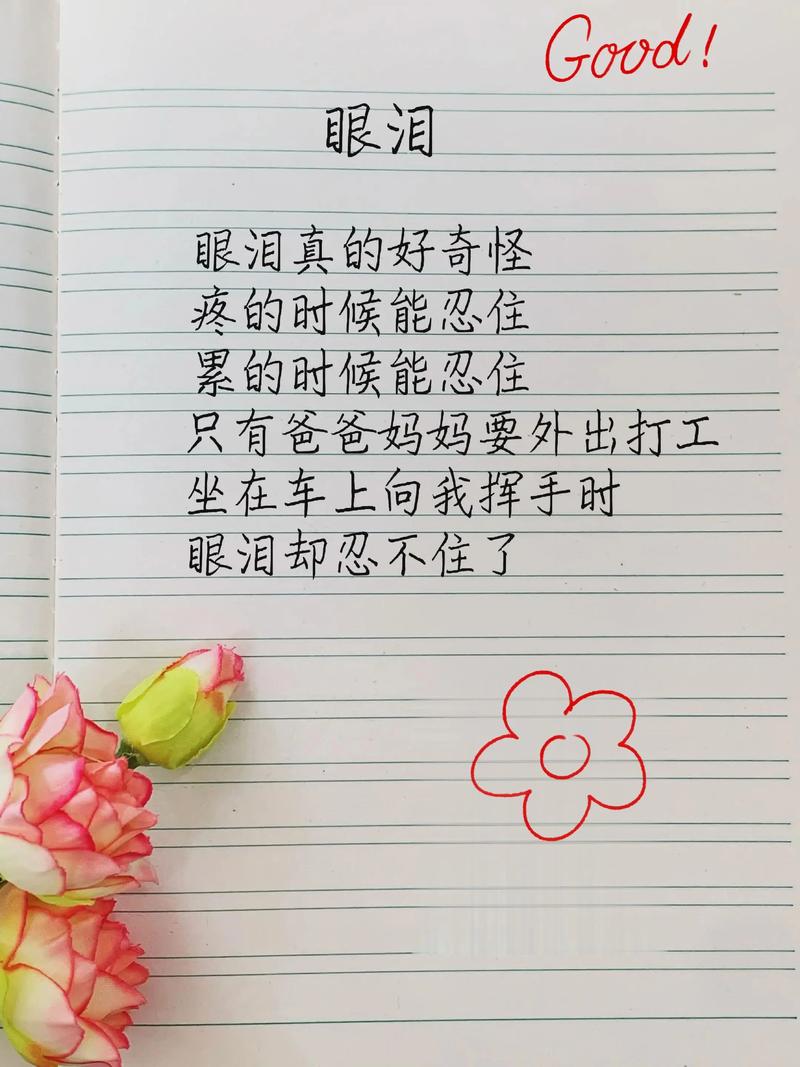 Good!
眼泪
眼泪真的好奇怪
疼的时候能忍住
累的时候能忍住
只有爸爸妈妈要外出打工
坐在车上向我挥手时
眼泪却忍不住了